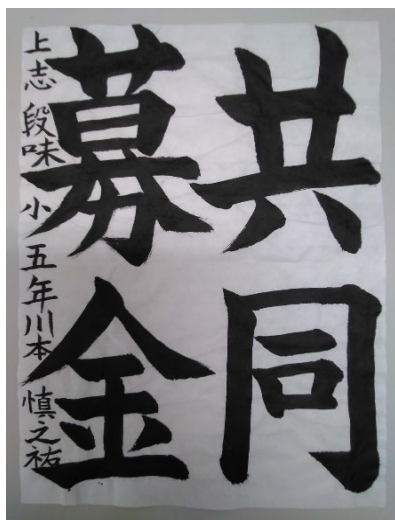 共同
募金
上志段味小五年川本慎之祐